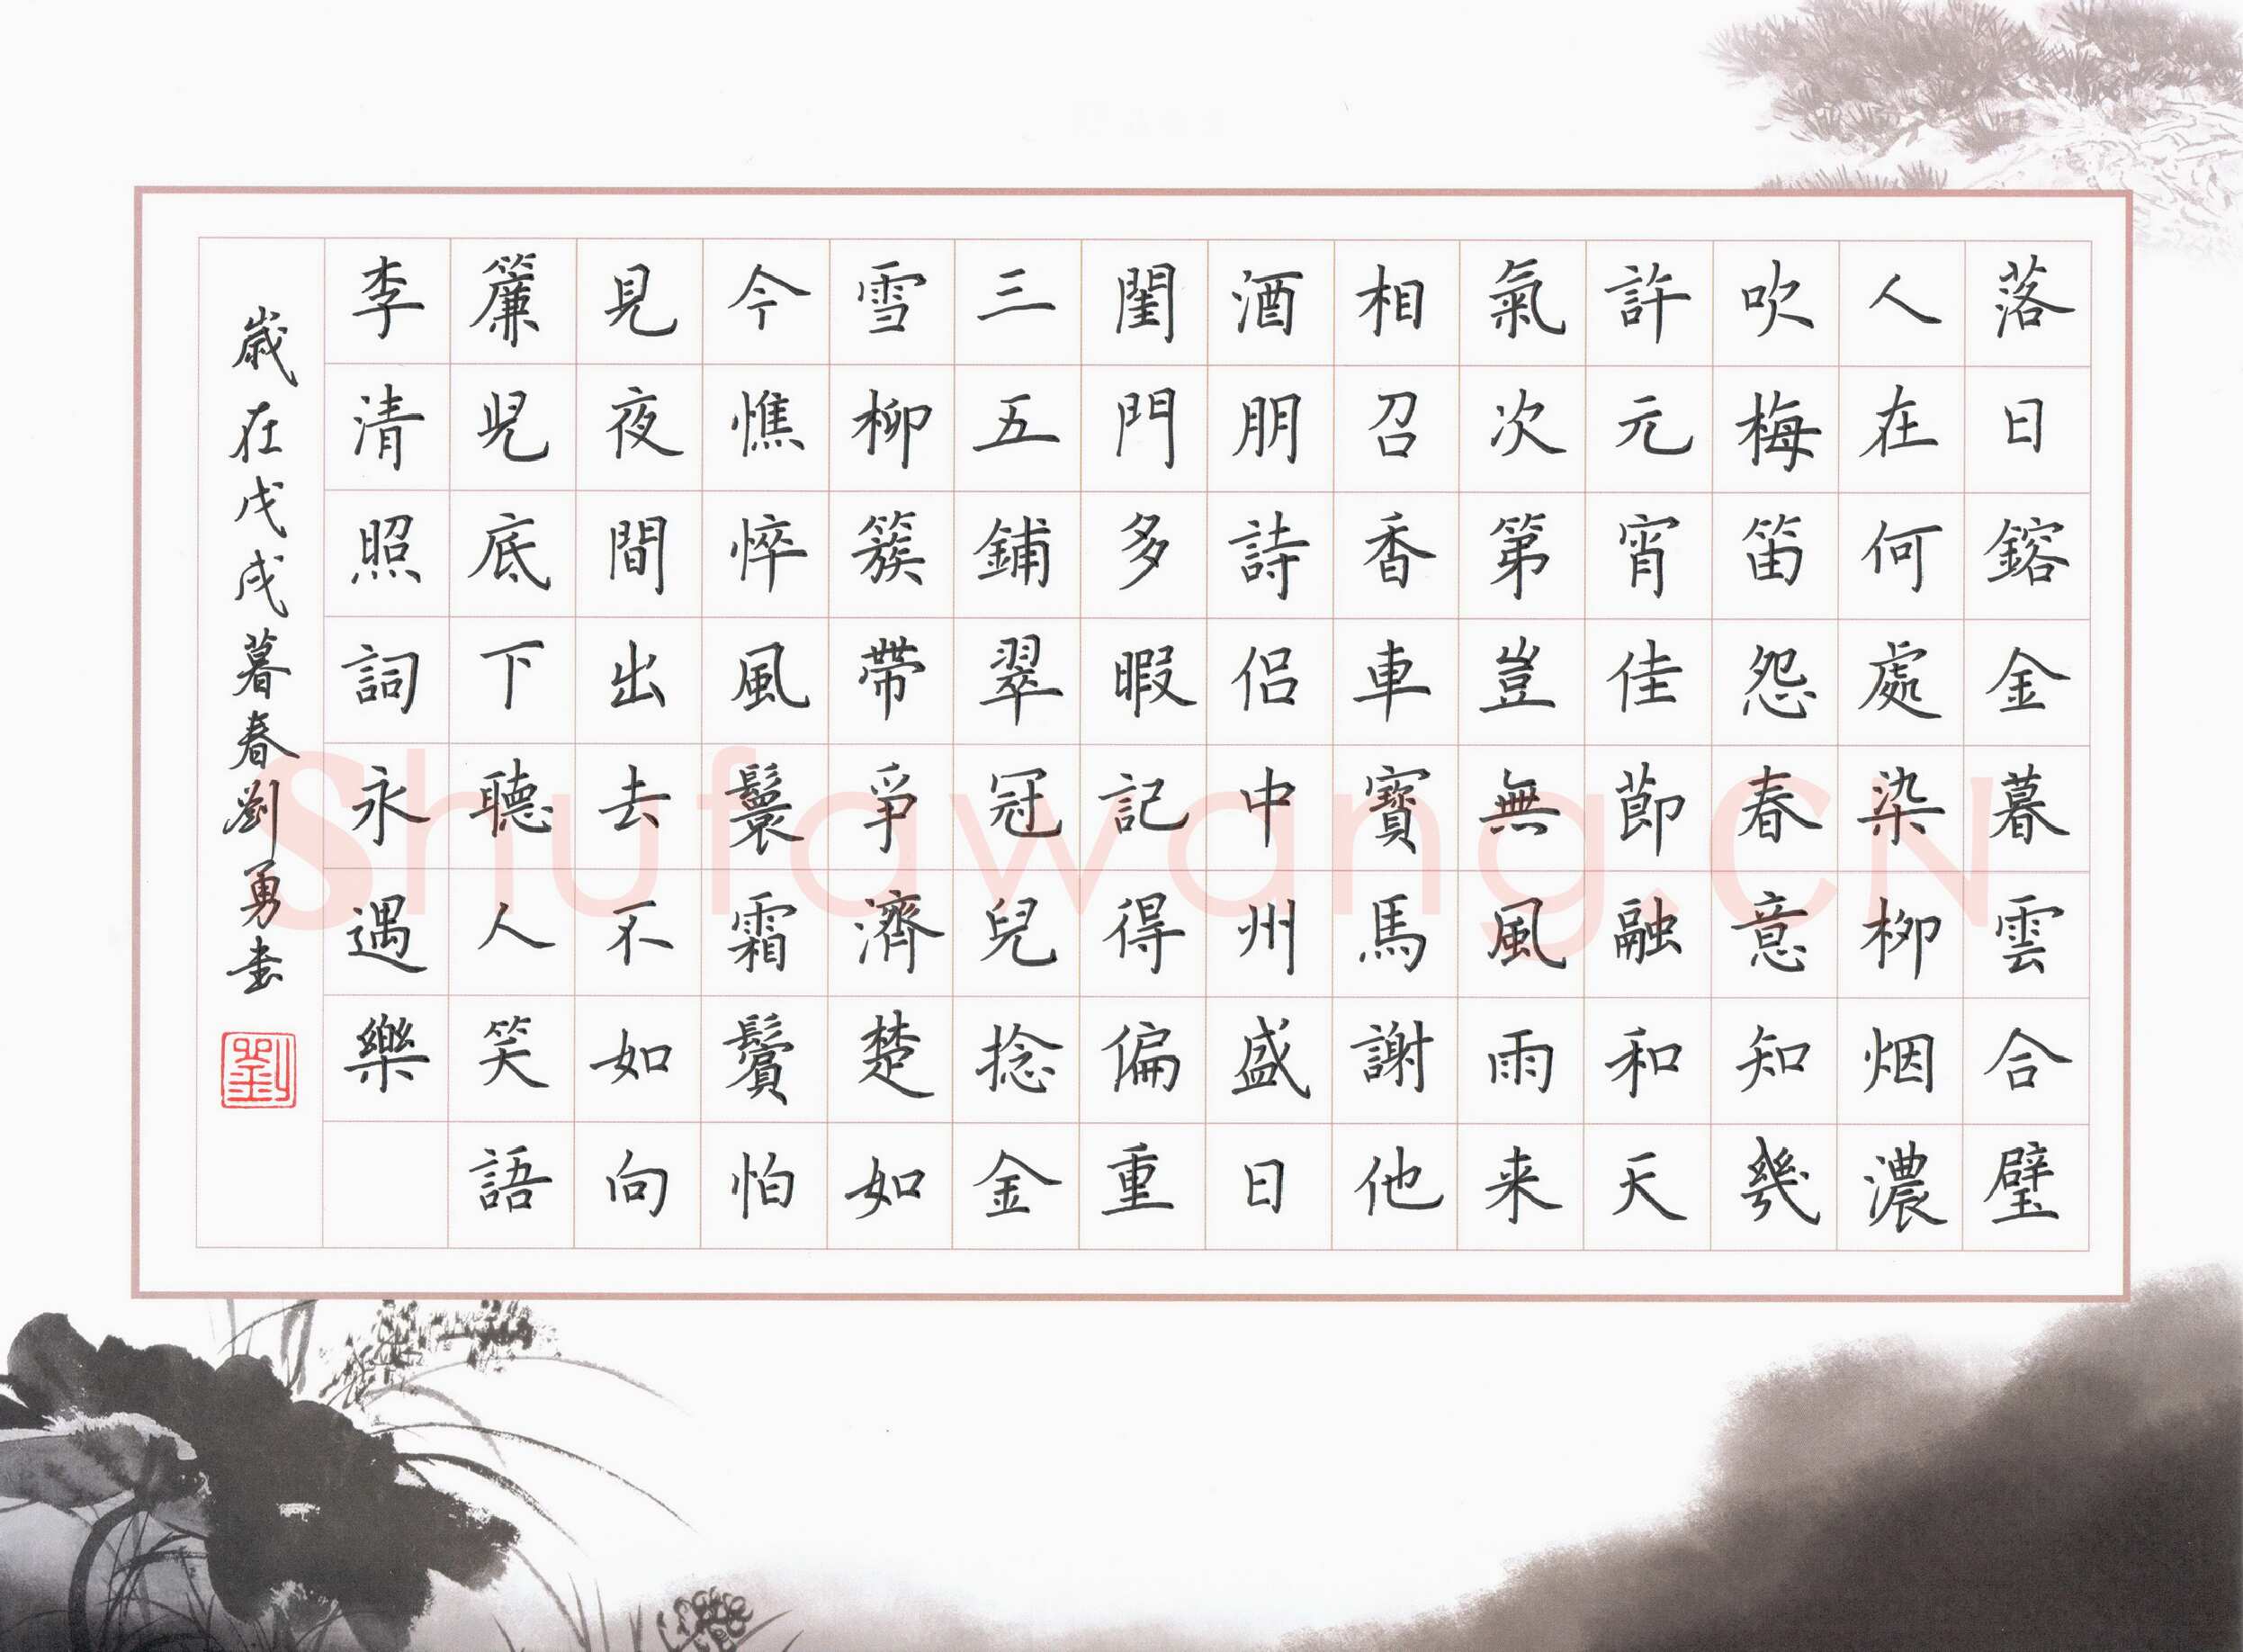 落日鎔金暮雲合璧
人在何處染柳烟濃
吹梅笛怨春意知幾
許元宵佳節融和天
氣次第豈無風雨来
相召香車寶馬謝他
酒朋詩侶中州盛日
閨門多暇記得偏重
三五鋪翠冠兒捻金
雪柳簇帶爭濟楚如
今憔悴風鬟霜鬢怕
見夜間出去不如向
簾兒底下聽人笑語
李清照詞永遇樂
歲在戊戌暮春劉勇書
劉
Shufawang.CN